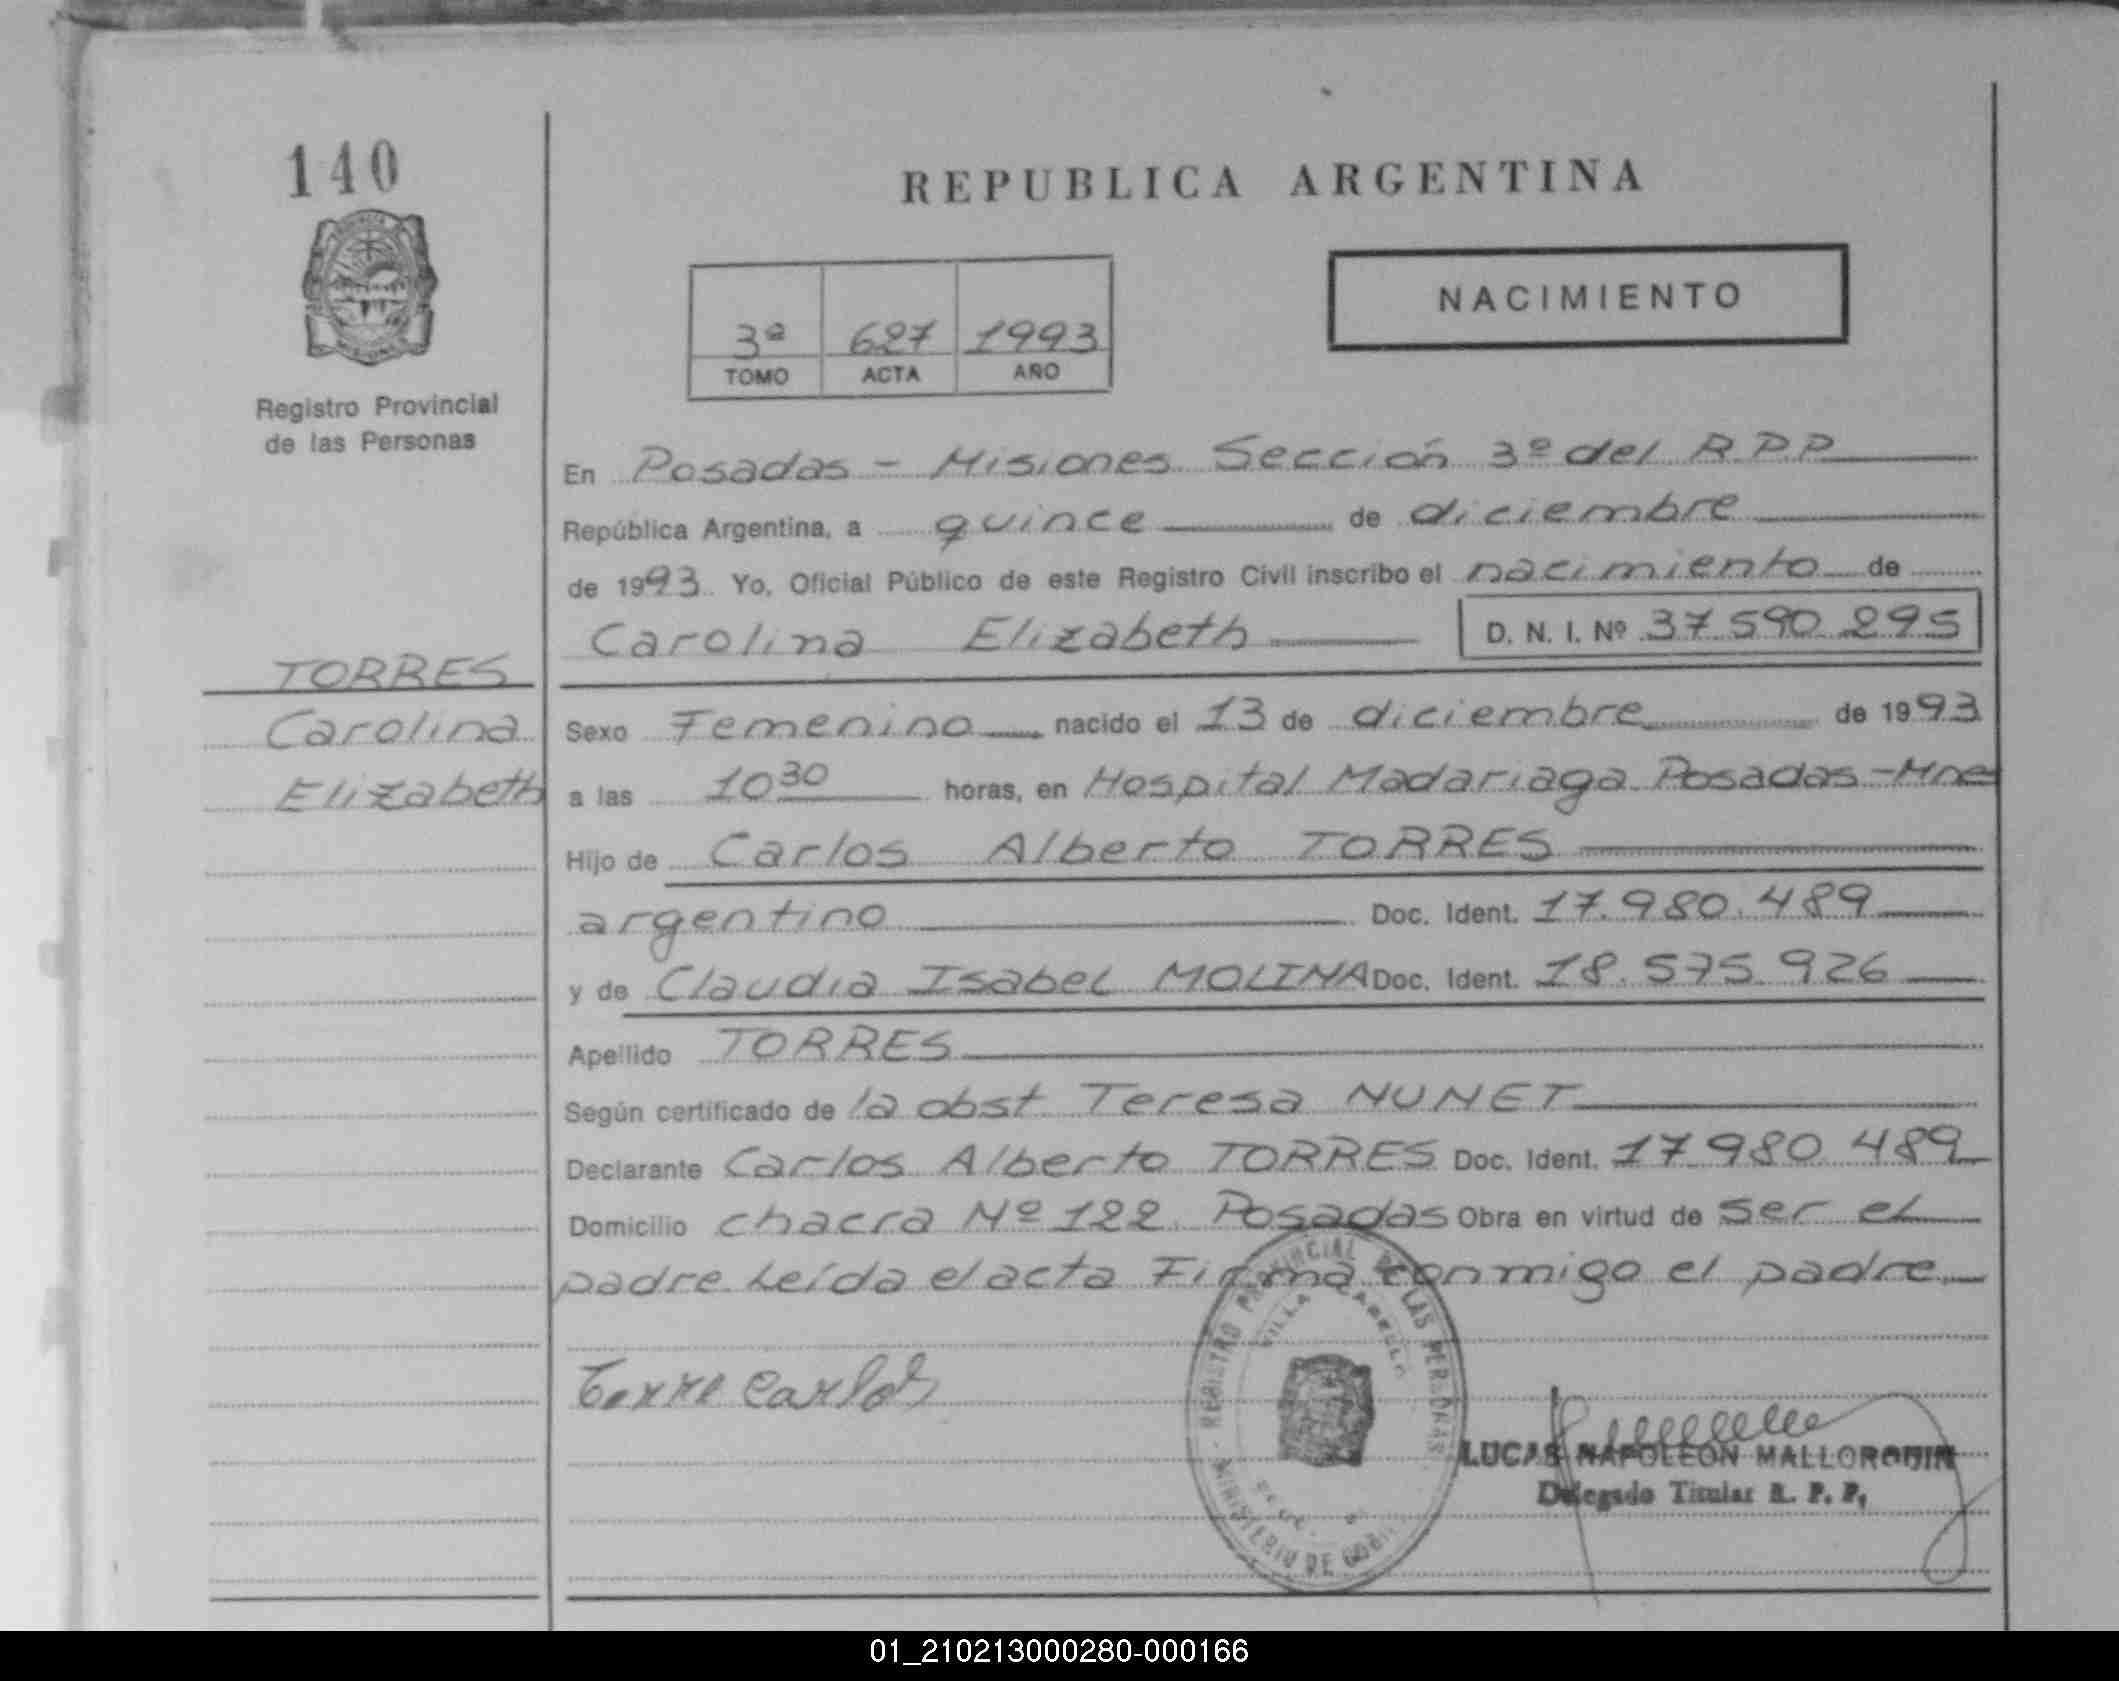 140
REPUBLICA ARGENTINA
NACIMIENTO
3ª 627 1993
TOMO ACTA AÑO
Registro Provincial
de las Personas
En Posadas - Misiones Sección 3º del R.P.P
República Argentina, a quince de diciembre
de 1993. Yo, Oficial Público de este Registro Civil inscribo el nacimiento de
Carolina Elizabeth D. N. I. Nº 37 590 295
TORRES
Carolina
Elizabeth
Sexo Femenino nacido el 13 de diciembre de 1993
a las 10 30 horas, en Hospital Madariaga Posadas-Mnes
Hijo de Carlos Alberto TORRES
argentino Doc. Ident. 17.980.489
y de Claudia Isabel MOLINA Doc. Ident. 18.575.926
Apellido TORRES
Según certificado de la obst Teresa NUNET
Declarante Carlos Alberto TORRES Doc. Ident. 17.980 489
Domicilio chacra Nº 122 Posadas Obra en virtud de ser el
padre Leída el acta Firma conmigo el padre
Torre Carlos
REGISTRO PROVINCIAL DE LAS PERSONAS
VILLA CABELLO
MINISTERIO DE GOB
LUCAS NAPOLEON MALLORQUIN
Delegado Titular R. P. P.
01_210213000280-000166